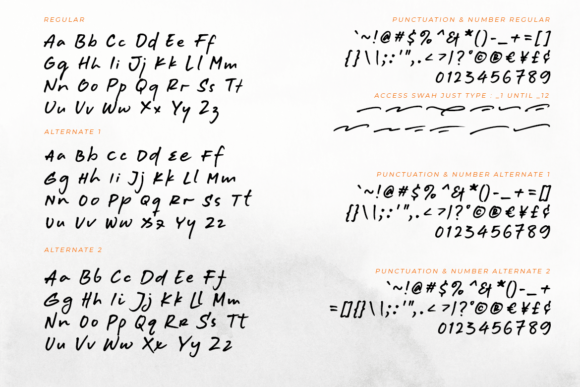 REGULAR
Aa Bb Cc Dd Ee Ff
Gg Hh Ii Jj Kk Ll Mm
Nn Oo Pp Qq Rr Ss Tt
Uu Vv Ww Xx Yy Zz
ALTERNATE 1
Aa Bb Cc Dd Ee Ff
Gg Hh Ii Jj Kk Ll Mm
Nn Oo Pp Qq Rr Ss Tt
Uu Vv Ww Xx Yy Zz
ALTERNATE 2
Aa Bb Cc Dd Ee Ff
Gg Hh Ii Jj Kk Ll Mm
Nn Oo Pp Qq Rr Ss Tt
Uu Vv Ww Xx Yy Zz
PUNCTUATION & NUMBER REGULAR
`~!@#$%^&*()-_+=[]
{}\|;:'",.<>/?°©®€¥£¢
0123456789
ACCESS SWAH JUST TYPE : _1 UNTIL _12
PUNCTUATION & NUMBER ALTERNATE 1
`~!@#$%^&*()-_+=[]
{}\|;:'",.<>/?°©®€¥£¢
0123456789
PUNCTUATION & NUMBER ALTERNATE 2
`~!@#$%^&*()-_+
=[]{}\|;:'",.<>/?°©®€¥£¢
0123456789